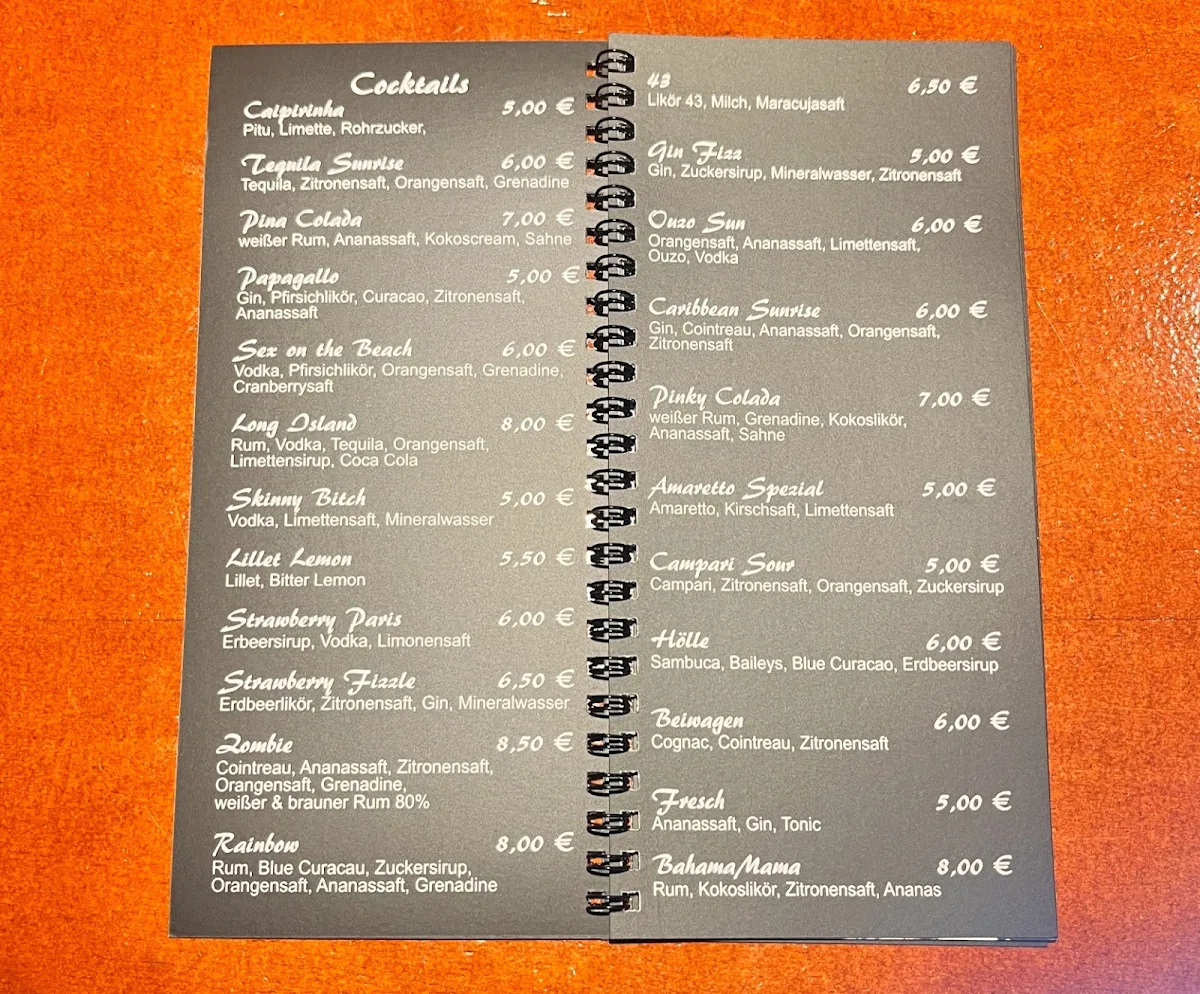 Cocktails
Caipirinha 5,00 €
Pitu, Limette, Rohrzucker,
Tequila Sunrise 6,00 €
Tequila, Zitronensaft, Orangensaft, Grenadine
Pina Colada 7,00 €
weißer Rum, Ananassaft, Kokoscream, Sahne
Papagallo 5,00 €
Gin, Pfirsichlikör, Curacao, Zitronensaft,
Ananassaft
Sex on the Beach 6,00 €
Vodka, Pfirsichlikör, Orangensaft, Grenadine,
Cranberrysaft
Long Island 8,00 €
Rum, Vodka, Tequila, Orangensaft,
Limettensirup, Coca Cola
Skinny Bitch 5,00 €
Vodka, Limettensaft, Mineralwasser
Lillet Lemon 5,50 €
Lillet, Bitter Lemon
Strawberry Paris 6,00 €
Erbeersirup, Vodka, Limonensaft
Strawberry Fizzle 6,50 €
Erdbeerlikör, Zitronensaft, Gin, Mineralwasser
Zombie 8,50 €
Cointreau, Ananassaft, Zitronensaft,
Orangensaft, Grenadine,
weißer & brauner Rum 80%
Rainbow 8,00 €
Rum, Blue Curacau, Zuckersirup,
Orangensaft, Ananassaft, Grenadine
43 6,50 €
Likör 43, Milch, Maracujasaft
Gin Fizz 5,00 €
Gin, Zuckersirup, Mineralwasser, Zitronensaft
Ouzo Sun 6,00 €
Orangensaft, Ananassaft, Limettensaft,
Ouzo, Vodka
Caribbean Sunrise 6,00 €
Gin, Cointreau, Ananassaft, Orangensaft,
Zitronensaft
Pinky Colada 7,00 €
weißer Rum, Grenadine, Kokoslikör,
Ananassaft, Sahne
Amaretto Spezial 5,00 €
Amaretto, Kirschsaft, Limettensaft
Campari Sour 5,00 €
Campari, Zitronensaft, Orangensaft, Zuckersirup
Hölle 6,00 €
Sambuca, Baileys, Blue Curacao, Erdbeersirup
Beiwagen 6,00 €
Cognac, Cointreau, Zitronensaft
Fresch 5,00 €
Ananassaft, Gin, Tonic
BahamaMama 8,00 €
Rum, Kokoslikör, Zitronensaft, Ananas